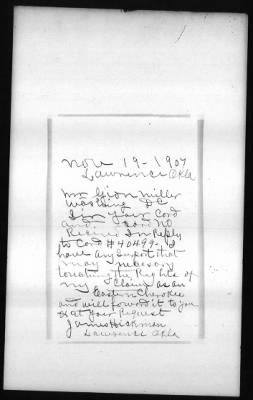 Nov 19-1907
Lawrence Okla
Mr Gion Miller
Washing DC
I Am Your Card
and Card No
Recived In Reply
to Card #40499- I
have Any Suport that
may necesary
touching the Rights of
my Claim as an
Eastern Cherokee
and will forward it to you
at your Request
James Hickman
Lawrence Okla